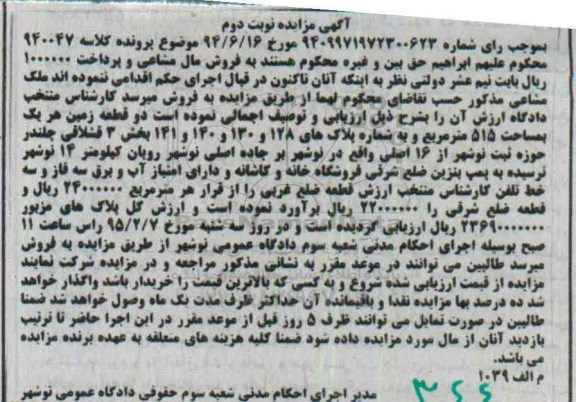 آگهی مزایده نوبت دوم
بموجب رای شماره ۹۴۰۹۹۷۱۹۷۲۳۰۰۶۲۳ مورخ ۹۴/۶/۱۶ موضوع پرونده کلاسه ۹۴۰۰۴۷
محکوم علیهم ابراهیم حق بین و غیره محکوم هستند به فروش مال مشاعی و پرداخت ۱۰۰۰۰۰۰
ریال بابت نیم عشر دولتی نظر به اینکه آنان تاکنون در قبال اجرای حکم اقدامی ننموده اند ملک
مشاعی مذکور حسب تقاضای محکوم لهما از طریق مزایده به فروش میرسد کارشناس منتخب
دادگاه ارزش آن را بشرح ذیل ارزیابی و توصیف اجمالی نموده است دو قطعه زمین هر یک
بمساحت ۵۱۵ مترمربع و به شماره پلاک های ۱۲۸ و ۱۳۰ و ۱۴۰ و ۱۴۱ بخش ۳ قشلاقی چلندر
حوزه ثبت نوشهر از ۱۶ اصلی واقع در نوشهر بر جاده اصلی نوشهر رویان کیلومتر ۱۴ نوشهر
نرسیده به پمپ بنزین ضلع شرقی فروشگاه خانه و کاشانه و دارای امتیاز آب و برق سه فاز و سه
خط تلفن کارشناس منتخب ارزش قطعه ضلع غربی را از قرار هر مترمربع ۲۴۰۰۰۰۰۰ ریال و
قطعه ضلع شرقی را ۲۲۰۰۰۰۰۰ ریال برآورد نموده است و ارزش کل پلاک های مزبور
۲۳۶۹۰۰۰۰۰۰۰ ریال ارزیابی گردیده است و در روز سه شنبه مورخ ۹۵/۲/۷ راس ساعت ۱۱
صبح بوسیله اجرای احکام مدنی شعبه سوم دادگاه عمومی نوشهر از طریق مزایده به فروش
میرسد طالبین می توانند در موعد مقرر به نشانی مذکور مراجعه و در مزایده شرکت نمایند
مزایده از قیمت ارزیابی شده شروع و به کسی که بالاترین قیمت را خریدار باشد واگذار خواهد
شد ده درصد بها مزایده نقدا و باقیمانده آن حداکثر ظرف مدت یک ماه وصول خواهد شد ضمنا
طالبین در صورت تمایل می توانند ظرف ۵ روز قبل از موعد مقرر در این اجرا حاضر تا ترتیب
بازدید آنان از مال مورد مزایده داده شود ضمنا کلیه هزینه های متعلقه به عهده برنده مزایده
می باشد.
م الف ۱۰۳۹
مدیر اجرای احکام مدنی شعبه سوم حقوقی دادگاه عمومی نوشهر